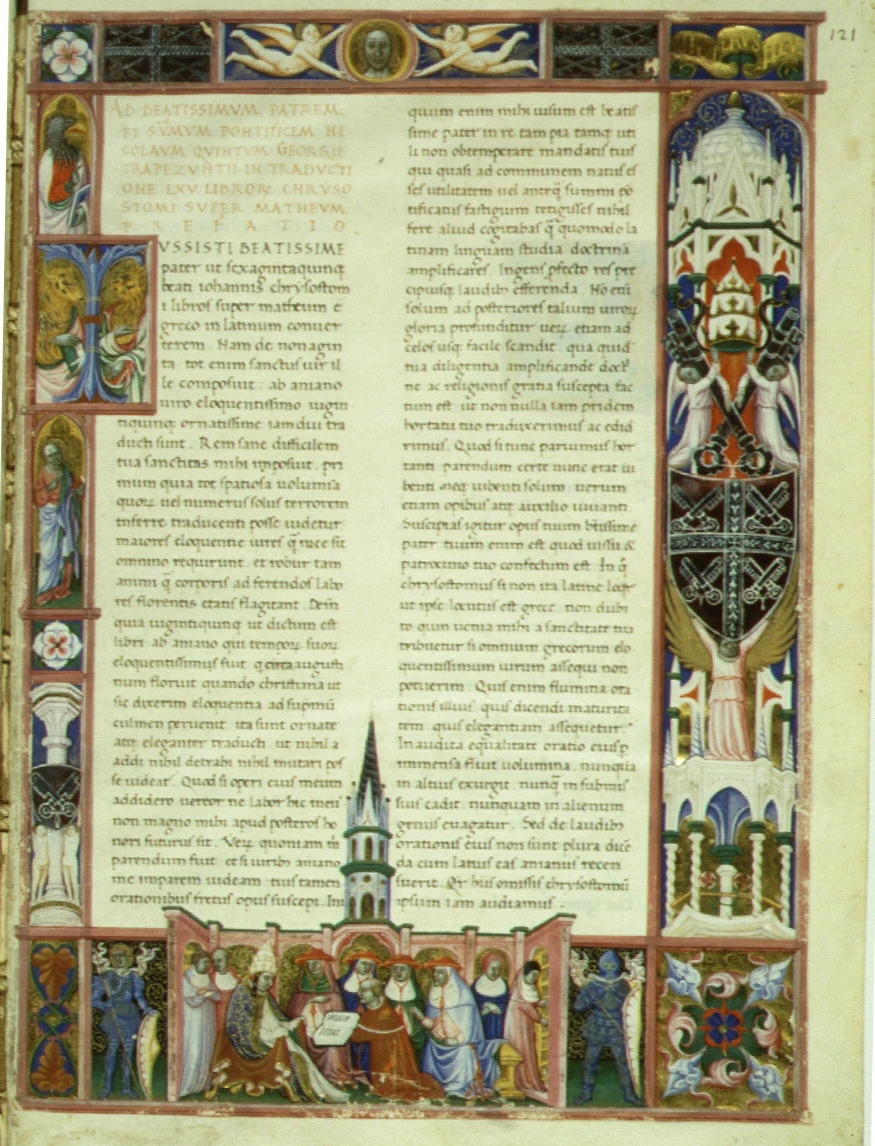 121
AD BEATISSIMVM PATREM
ET SVMVM PONTIFICEM NI
COLAVM QVINTVM GEORGII
TRAPEZVNTII IN TRADVCTI
ONE LXV LIBROR CHRYSO
STOMI SVPER MATHEVM
PREFATIO
IVSSISTI BEATISSIME
pater ut sexagintaquinq
beati iohannis chrysostom
i libros super matheum e
greco in latinum conuer
terem. Nam de nonagin
ta tot enim sanctus uir il
le composuit. ab aniano
uiro eloquentissimo uigin
tiquinq ornatissime iam diu tra
ducti sunt. Rem sane difficilem
tua sanctitas mihi imposuit. pri
mum quia tot spatiosa uolumina
quoru uel numerus solus terrorem
inferre traducenti posse uidetur
maiores eloquentie uires q in me sit
omnino requirunt. et robur tam
animi q corporis ad ferendos labo
res florentis etatis flagitant. Dein
quia uigintiquinq ut dictum est
libri ab aniano qui temporu suoru
eloquentissimus fuit q circa augusti
num floruit quando christiana ut
sic dixerim eloquentia ad supmu
culmen peruenit. ita sunt ornate
atq eleganter traducti ut nihil a
addi nihil detrahi nihil mutari pos
se uideat. Quod si operi eius meum
addidero uereor ne labor hic meus
non magno mihi apud posteros ho
nori futurus sit. Veru quoniam tibi
parendum fuit etsi uirib aniano
me imparem uideam tuis tamen
orationibus fretus opus suscepi. In
quum enim mihi uisum est beatis
sime pater in re tam pia tamq uti
li non obtemperare mandatis tuis
qui quasi ad communem natus es
ses utilitatem uel anteq summi po
tificatus fastigium tetigisses nihil
fere aliud cogitabas q quomodo la
tinam linguam studia doctrina
amplificares. Ingens pfecto res pre
cipuisq laudib efferenda. No eni
solum ad posteriores talium uiroru
gloria profunditur ueru etiam ad
celos usq facile scandit. qua quid
tua diligentia amplificande doctri
ne ac religionis gratia suscepta fac
tum est ut non nulla iam pridem
hortatu tuo traduxerimus ac edid
rimus. Quod si tunc paruimus hor
tanti parendum certe nunc erat iu
benti. neq iubenti solum uerum
etiam opibus atq auxilio iuuanti.
Suscipias igitur opus tuum btissime
pater tuum enim est quod iussu &
patrocinio tuo confectum est. In q
chrysostomus si non ita latine loqr
ut ipse locutus est grece. non dubi
to quin uenia mihi a sanctitate tua
tribuetur si omnium grecorum elo
quentissimum uirum assequi non
potuerim. Quis enim flumina ora
tionis illius quis dicendi maturita
tem quis elegantiam assequetur.
Inaudita equalitate oratio eius p
immensa fluit uolumina. nunqua
in altius exurgit. nunq in submis
sius cadit. nunquam in alienum
genus euagatur. Sed de laudib
orationis eius non sunt plura dice
da cum latius eas anianus recen
suerit. Qr his omissis chrysostomu
ipsum iam audiamus.